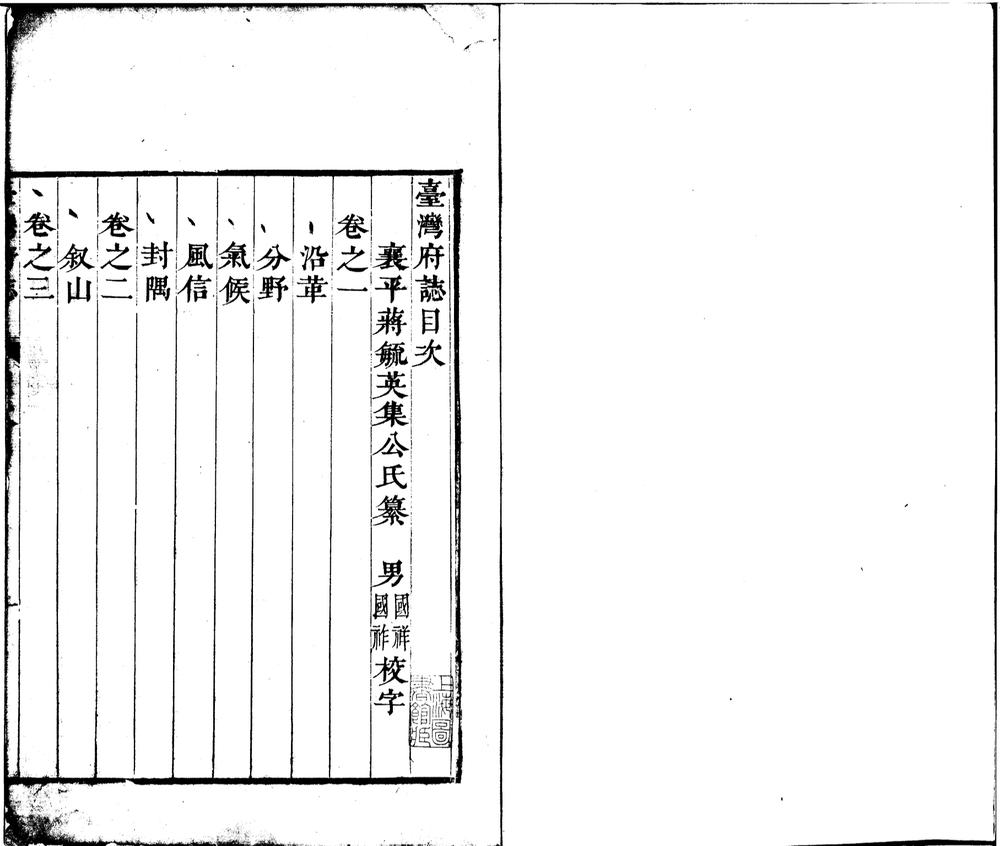 臺灣府誌目次
襄平蔣毓英集公氏纂 男國祥國祚校字
卷之一
沿革
分野
氣候
風信
封隅
卷之二
叙山
卷之三
上海圖書館藏